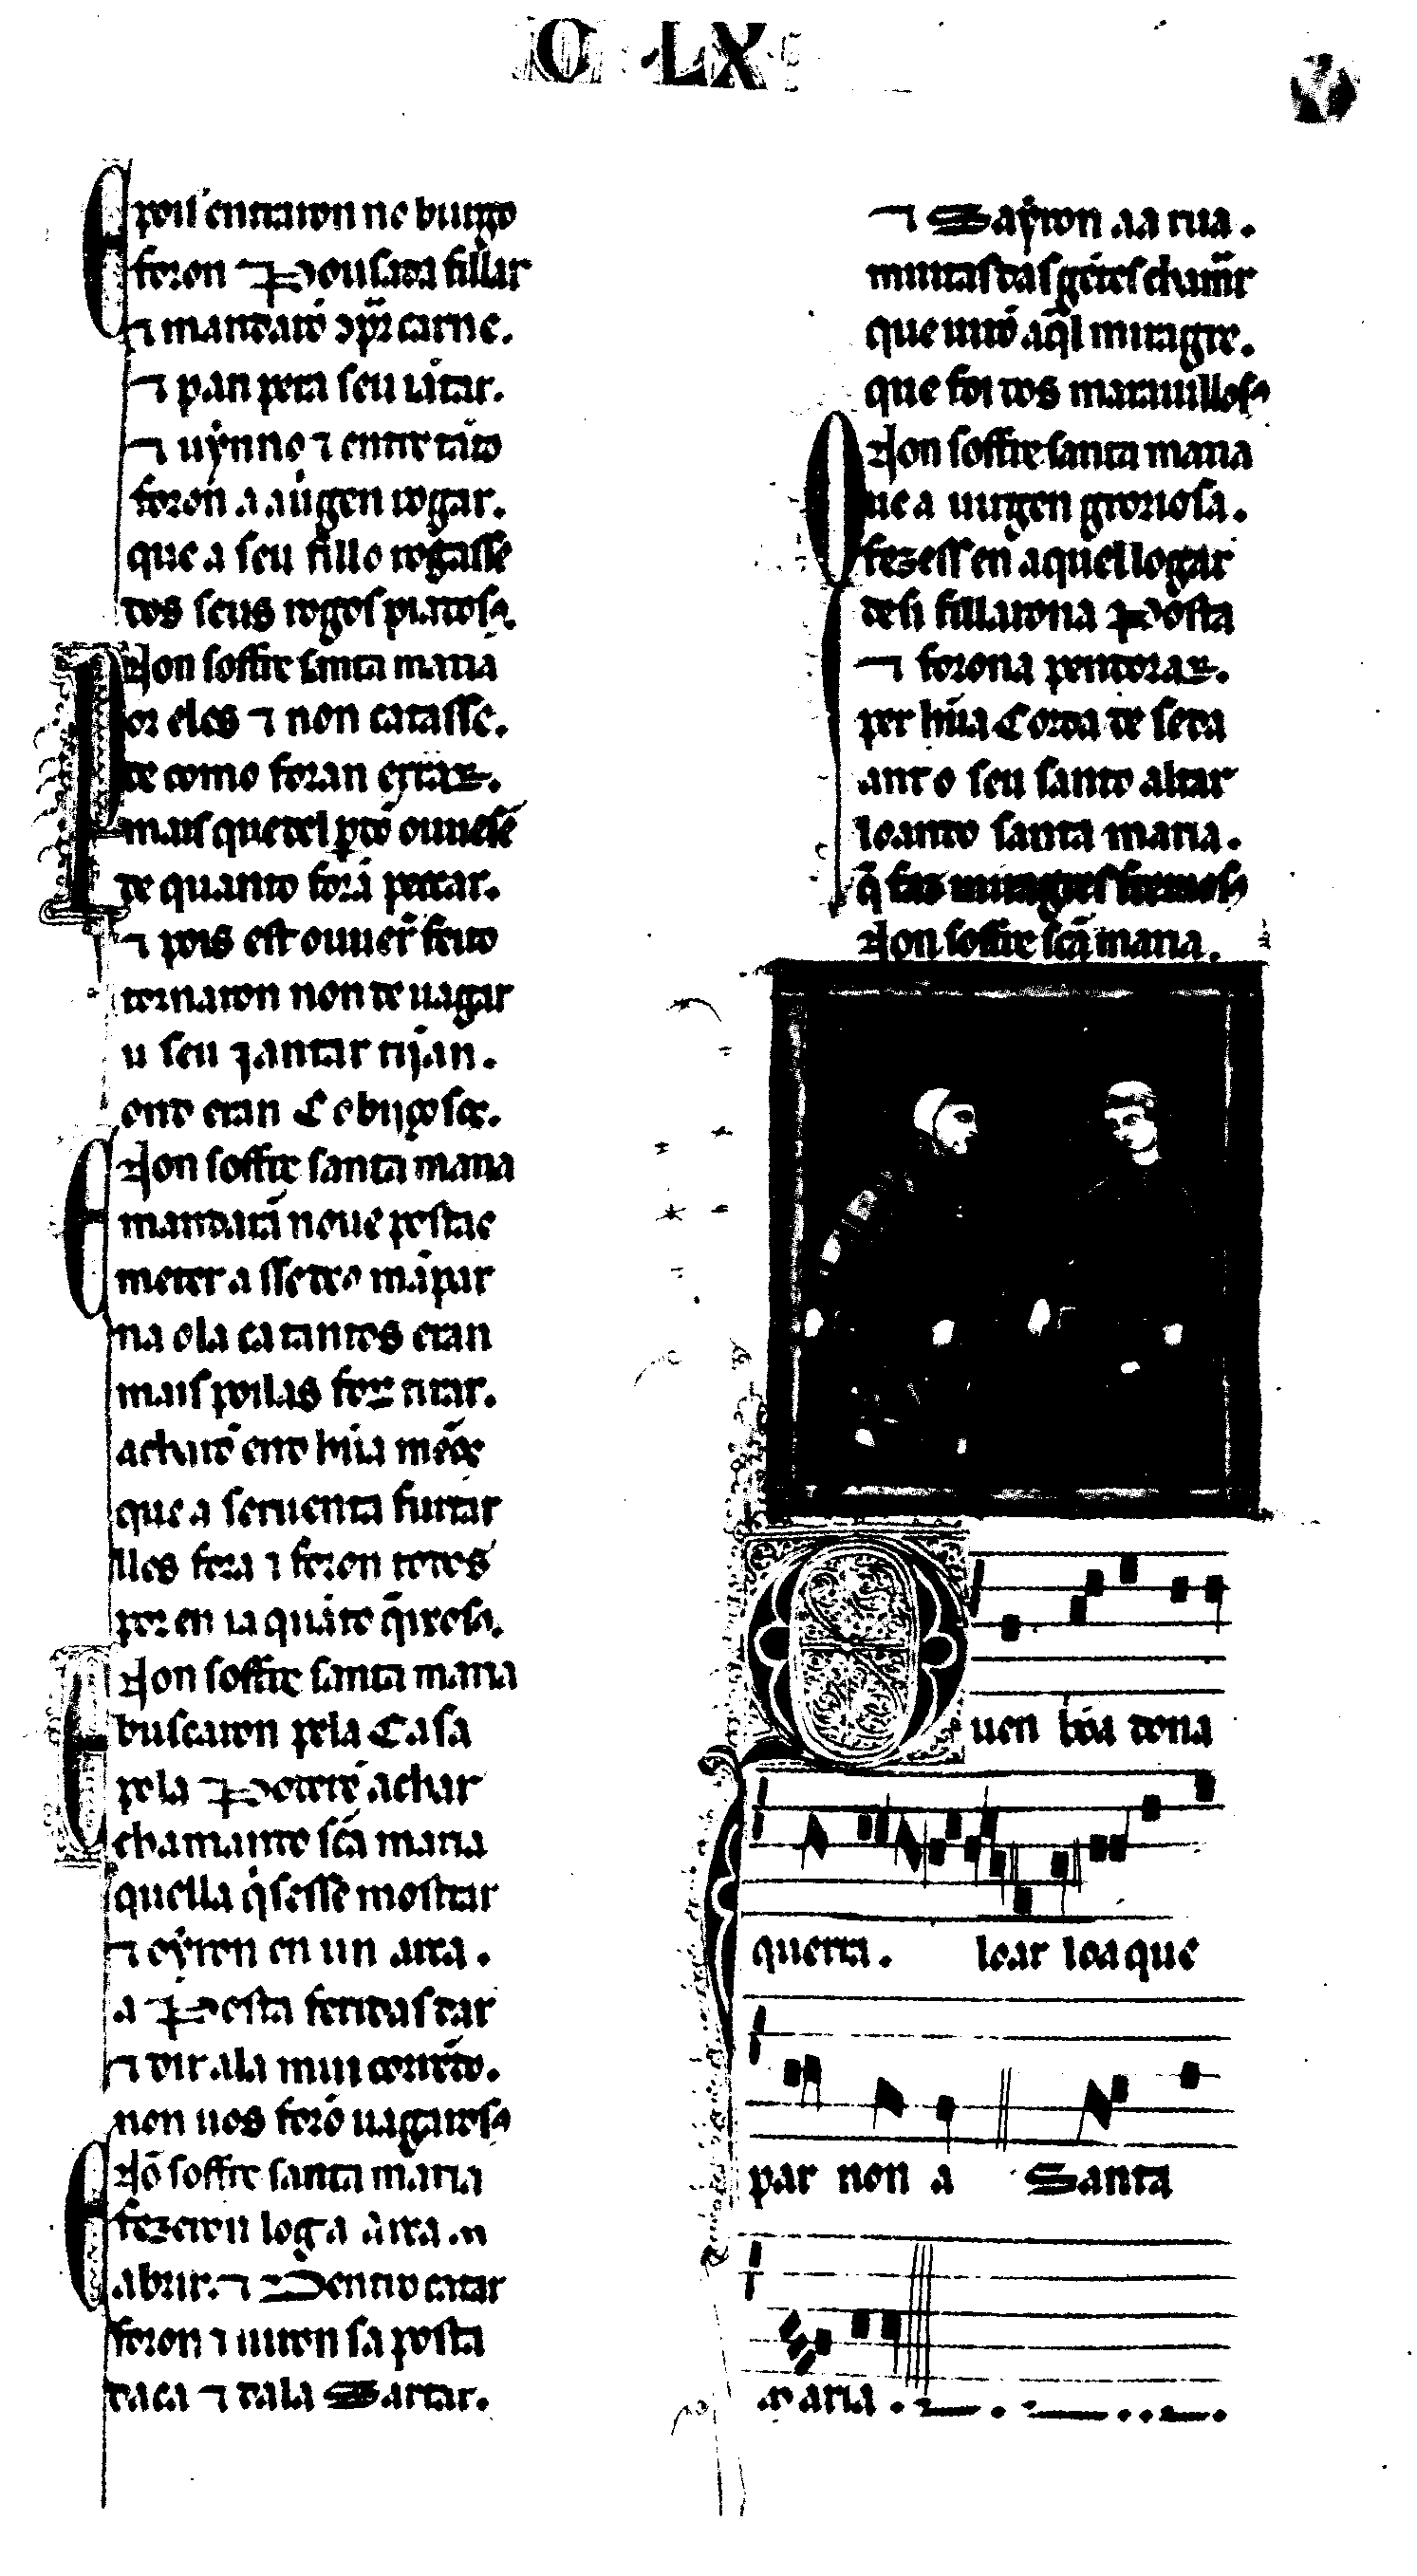 O · LX
E pois entraron no burgo
foron Pousada fillar
⁊ mandarõ ɔp̃r carne.
⁊ pan pera seu iãtar.
⁊ uỹno ⁊ entre tãto
foron a a uirgen rogar.
que a seu fillo rogasse
dos seus rogos piadosa.
Non soffre santa maria
Por eles ⁊ non catasse.
de como foran errar.
mais que del perdõ ouuessẽ
de quanto forã peccar.
⁊ pois est ouuerõ feito
tornaron non de uagar
u seu iantar tijan.
ond eran Cobijçosos.
Non soffre santa maria
E mandarã noue postas
meter asseed o mãpar
na ola ca tantos eran
mais poilas foron tirar.
acharõ end hũa menos
que a seruenta furtar
lles fora ⁊ foron todos
por en ia quãto q̃ixosos.
Non soffre santa maria
E buscaron pela Casa
pela Poderẽ achar
chamando scã maria
quella q̃sesse mostrar
⁊ oỹron en un arca.
a Posta feridas dar
⁊ d ir ala mui correndo.
non uos forõ uagarosos
Nõ soffre santa maria
E fezeron log a arca
abrir. ⁊ Dentro catar
foron ⁊ uiron sa posta
daca ⁊ dala Saltar.
⁊ Saỹron aa rua.
muitas das gẽtes chamar
que uirõ aq̃l miragre.
que foi dos marauillosos
Non soffre santa maria
Que a uirgen groriosa.
fezess en aquel logar
desi fillaron a Posta
⁊ foron a pendorar.
per hũa Corda de seda
ant o seu santo altar
loando santa maria.
q̃ faz miragres fremosos
Non soffre scã maria.
Quen bõa dona
querra. loar loa que
par non a Santa
maria.